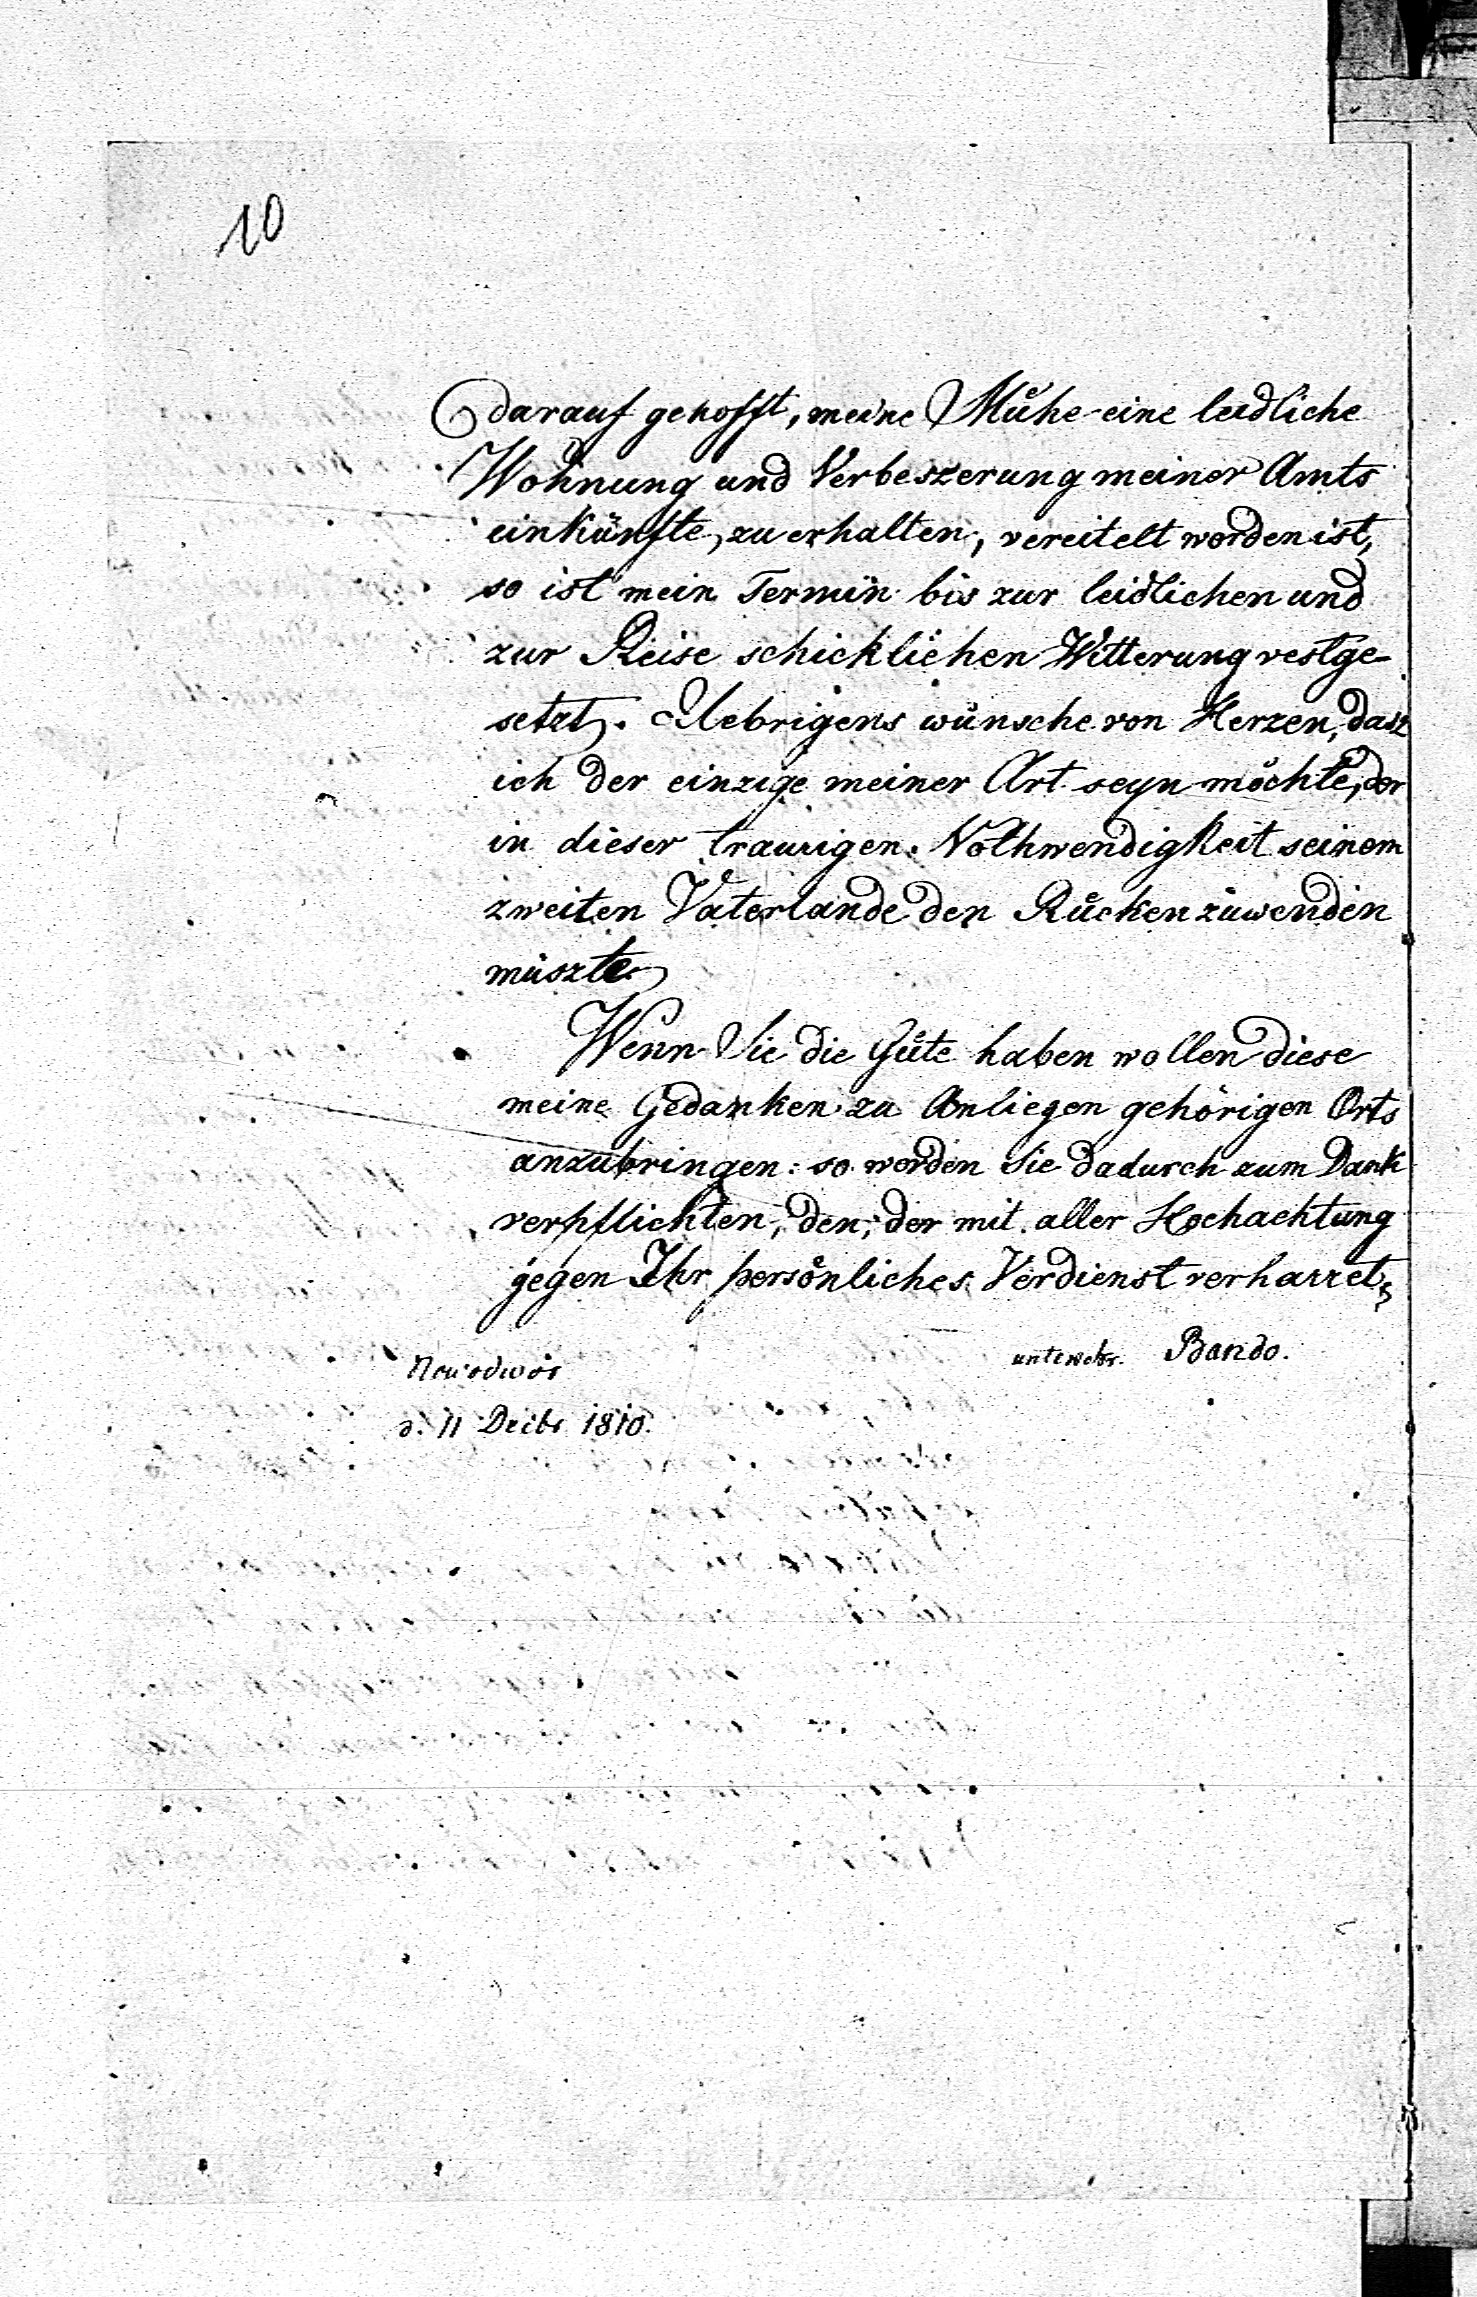 10
darauf gehofft, meine Mühe eine leidliche
Wohnung und Verbeszerung meiner Amts
einkünfte, zu erhalten, vereitelt worden ist,
so ist mein Termin bis zur leidlichen und
zur Reise schicklichen Witterung vestge-
setzt. Uebrigens wünsche von Herzen, dasz
ich der einzige meiner Art seyn möchte, der
in dieser traurigen Nothwendigkeit seinem
zweiten Vaterlande den Rücken zuwenden
müszte.
Wenn Sie die Güte haben wollen diese
meine Gedanken zu Anliegen gehörigen Orts
anzubringen: so werden Sie dadurch zum Dank
verpflichten, den, der mit aller Hochachtung
gegen Ihr persönliches Verdienst verharret,
Bando.
Nowodwór
d. 11 Decbr 1810.